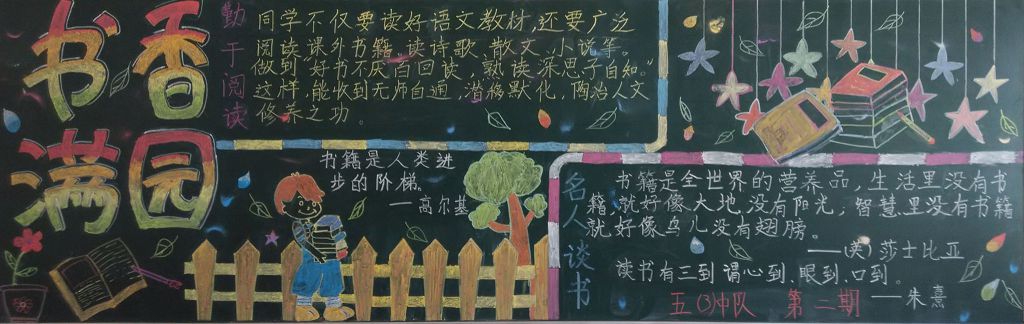 书香
满园
勤于阅读
同学不仅要读好语文教材,还要广泛
阅读课外书籍,读诗歌、散文、小说等。
做到“好书不厌百回读,熟读深思子自知。”
这样,能收到无师自通,潜移默化,陶冶人文
修养之功。
书籍是人类进
步的阶梯。
—高尔基
名人谈书
书籍是全世界的营养品,生活里没有书
籍,就好像大地没有阳光;智慧里没有书籍
就好像鸟儿没有翅膀。
——(英)莎士比亚
读书有三到,谓心到,眼到,口到。
——朱熹
五(3)中队 第二期